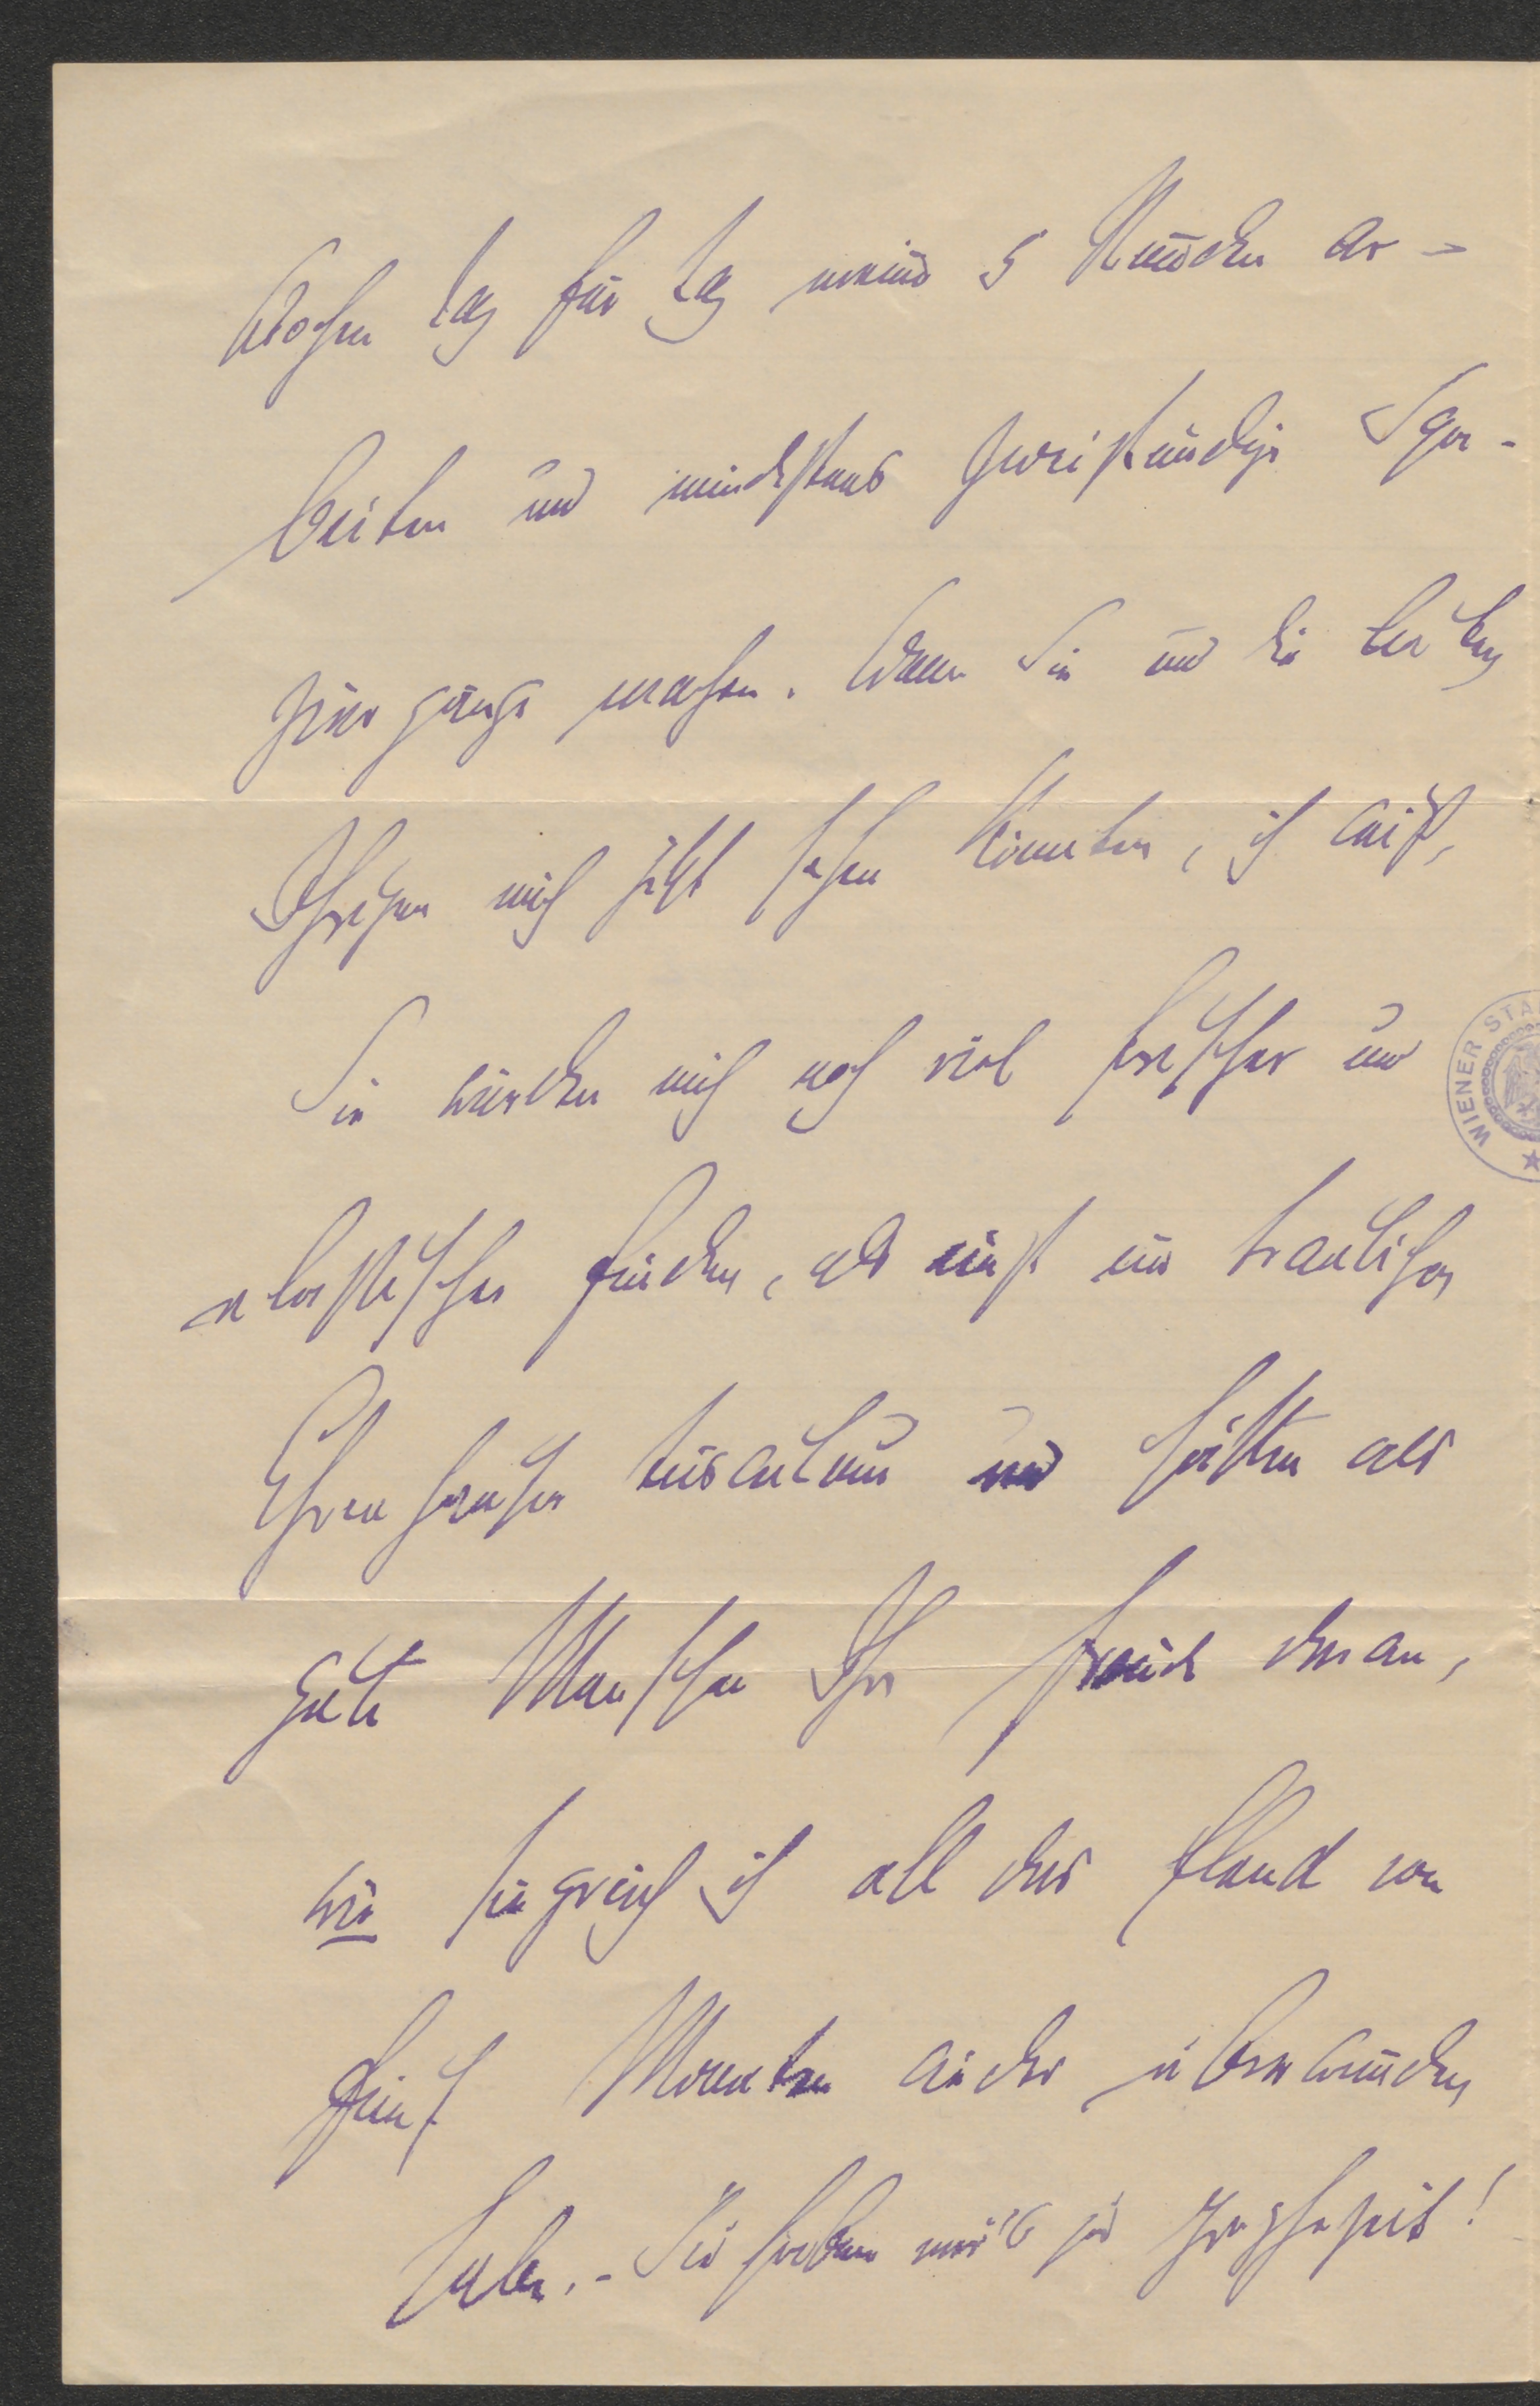 Wochen Tag für Tag meine 5 Stunden ar-
beiten und mindestens zweistündige Spa-
ziergänge machen. Wenn Sie und die lieben
Ihrigen mich jetzt sehen könnten, ich weiß,
Sie würden mich noch viel frischer und
elastischer finden, als einst im traulichen
Tusculum und hätten als
gute Menschen Ihre Freude daran,
wie siegreich ich all das Elend von
fünf Monaten wieder überwunden
habe. - Sie haben mir's ja prophezeit!
WIENER STA